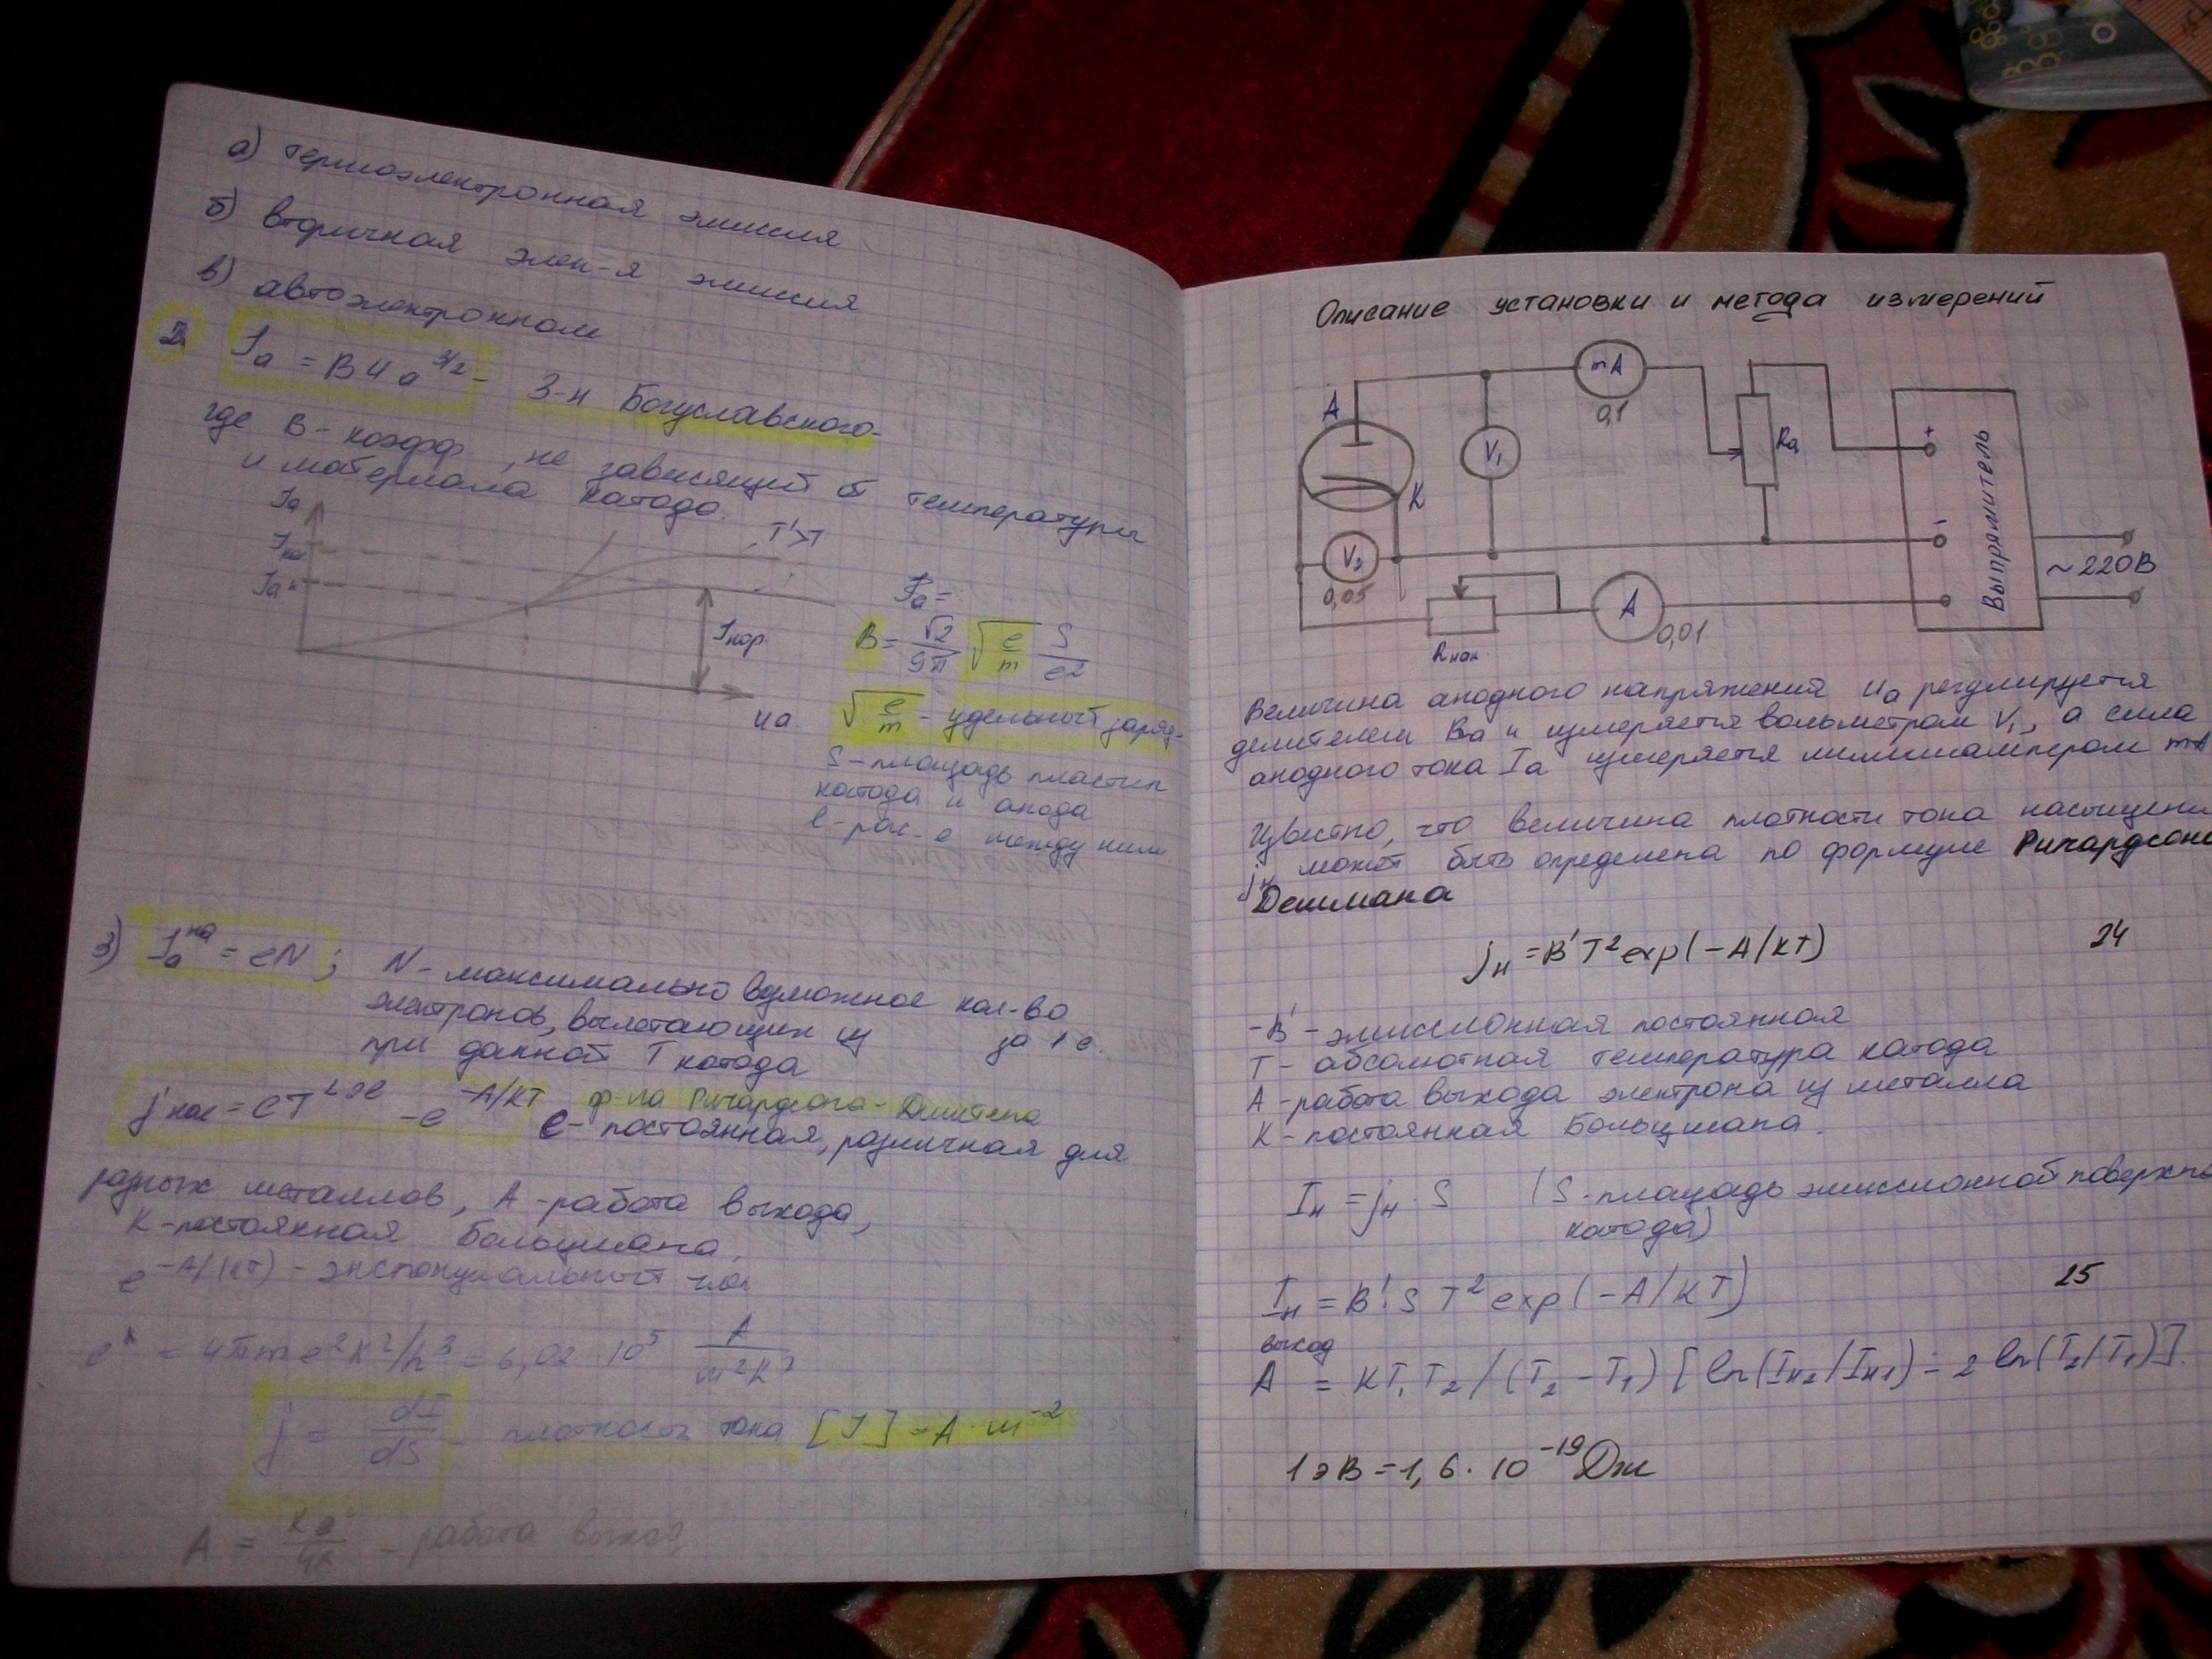 а) термоэлектронная эмиссия
б) вторичная элек-я эмиссия
в) автоэлектронном
2 Ia = BUa^3/2 - З-н Богуславского-
где B - коэфф, не зависящий от температуры
и материала катода.
Ia
T'>T
Iнас
Ia =
B = √2/9π √e/m S/e²
Ua
√e/m - удельный заряд-
S - площадь пластин
катода и анода
l - рас-е между ними
3) Ia^на = eN ; N - максимально возможное кол-во
электронов, вылетающих из за 1 с.
при данной T катода
ф-ла Ричардсона-
e - постоянная, различная для
разных металлов, A - работа выхода,
K - постоянная Больцмана,
e^-A/(KT) - экспонциальный
= 4πme²K²/h³ = 6,02 · 10⁵ A/m²K²
j = dI/dS - плотность тока [J] = A · m⁻²
A = - работа выхода
Описание установки и метода измерений
mA
0,1
A
K
V₁
V₂
0,05
Ra
Rнак
A
0,01
+
-
Выпрямитель
~220В
Величина анодного напряжения Ua регулируется
делителем Ra и измеряется вольметром V₁, а сила
анодного тока Ia измеряется миллиампером mA
Известно, что величина плотности тока насыщени
jн может быть определена по формуле Ричардсона
Дешмана
jн = B'T² exp(-A/KT) 24
-B' - эмиссионная постоянная
T - абсолютная температура катода
A - работа выхода электрона из металла
K - постоянная Больцмана.
Iн = jн · S (S - площадь эмиссионной поверхнь
катода)
Iн = B'. S T² exp(-A/KT) 25
выход
A = KT₁T₂/(T₂-T₁) [ln(Iн₂/Iн₁) - 2 ln(T₂/T₁)].
1 эВ = 1,6 · 10⁻¹⁹ Дж